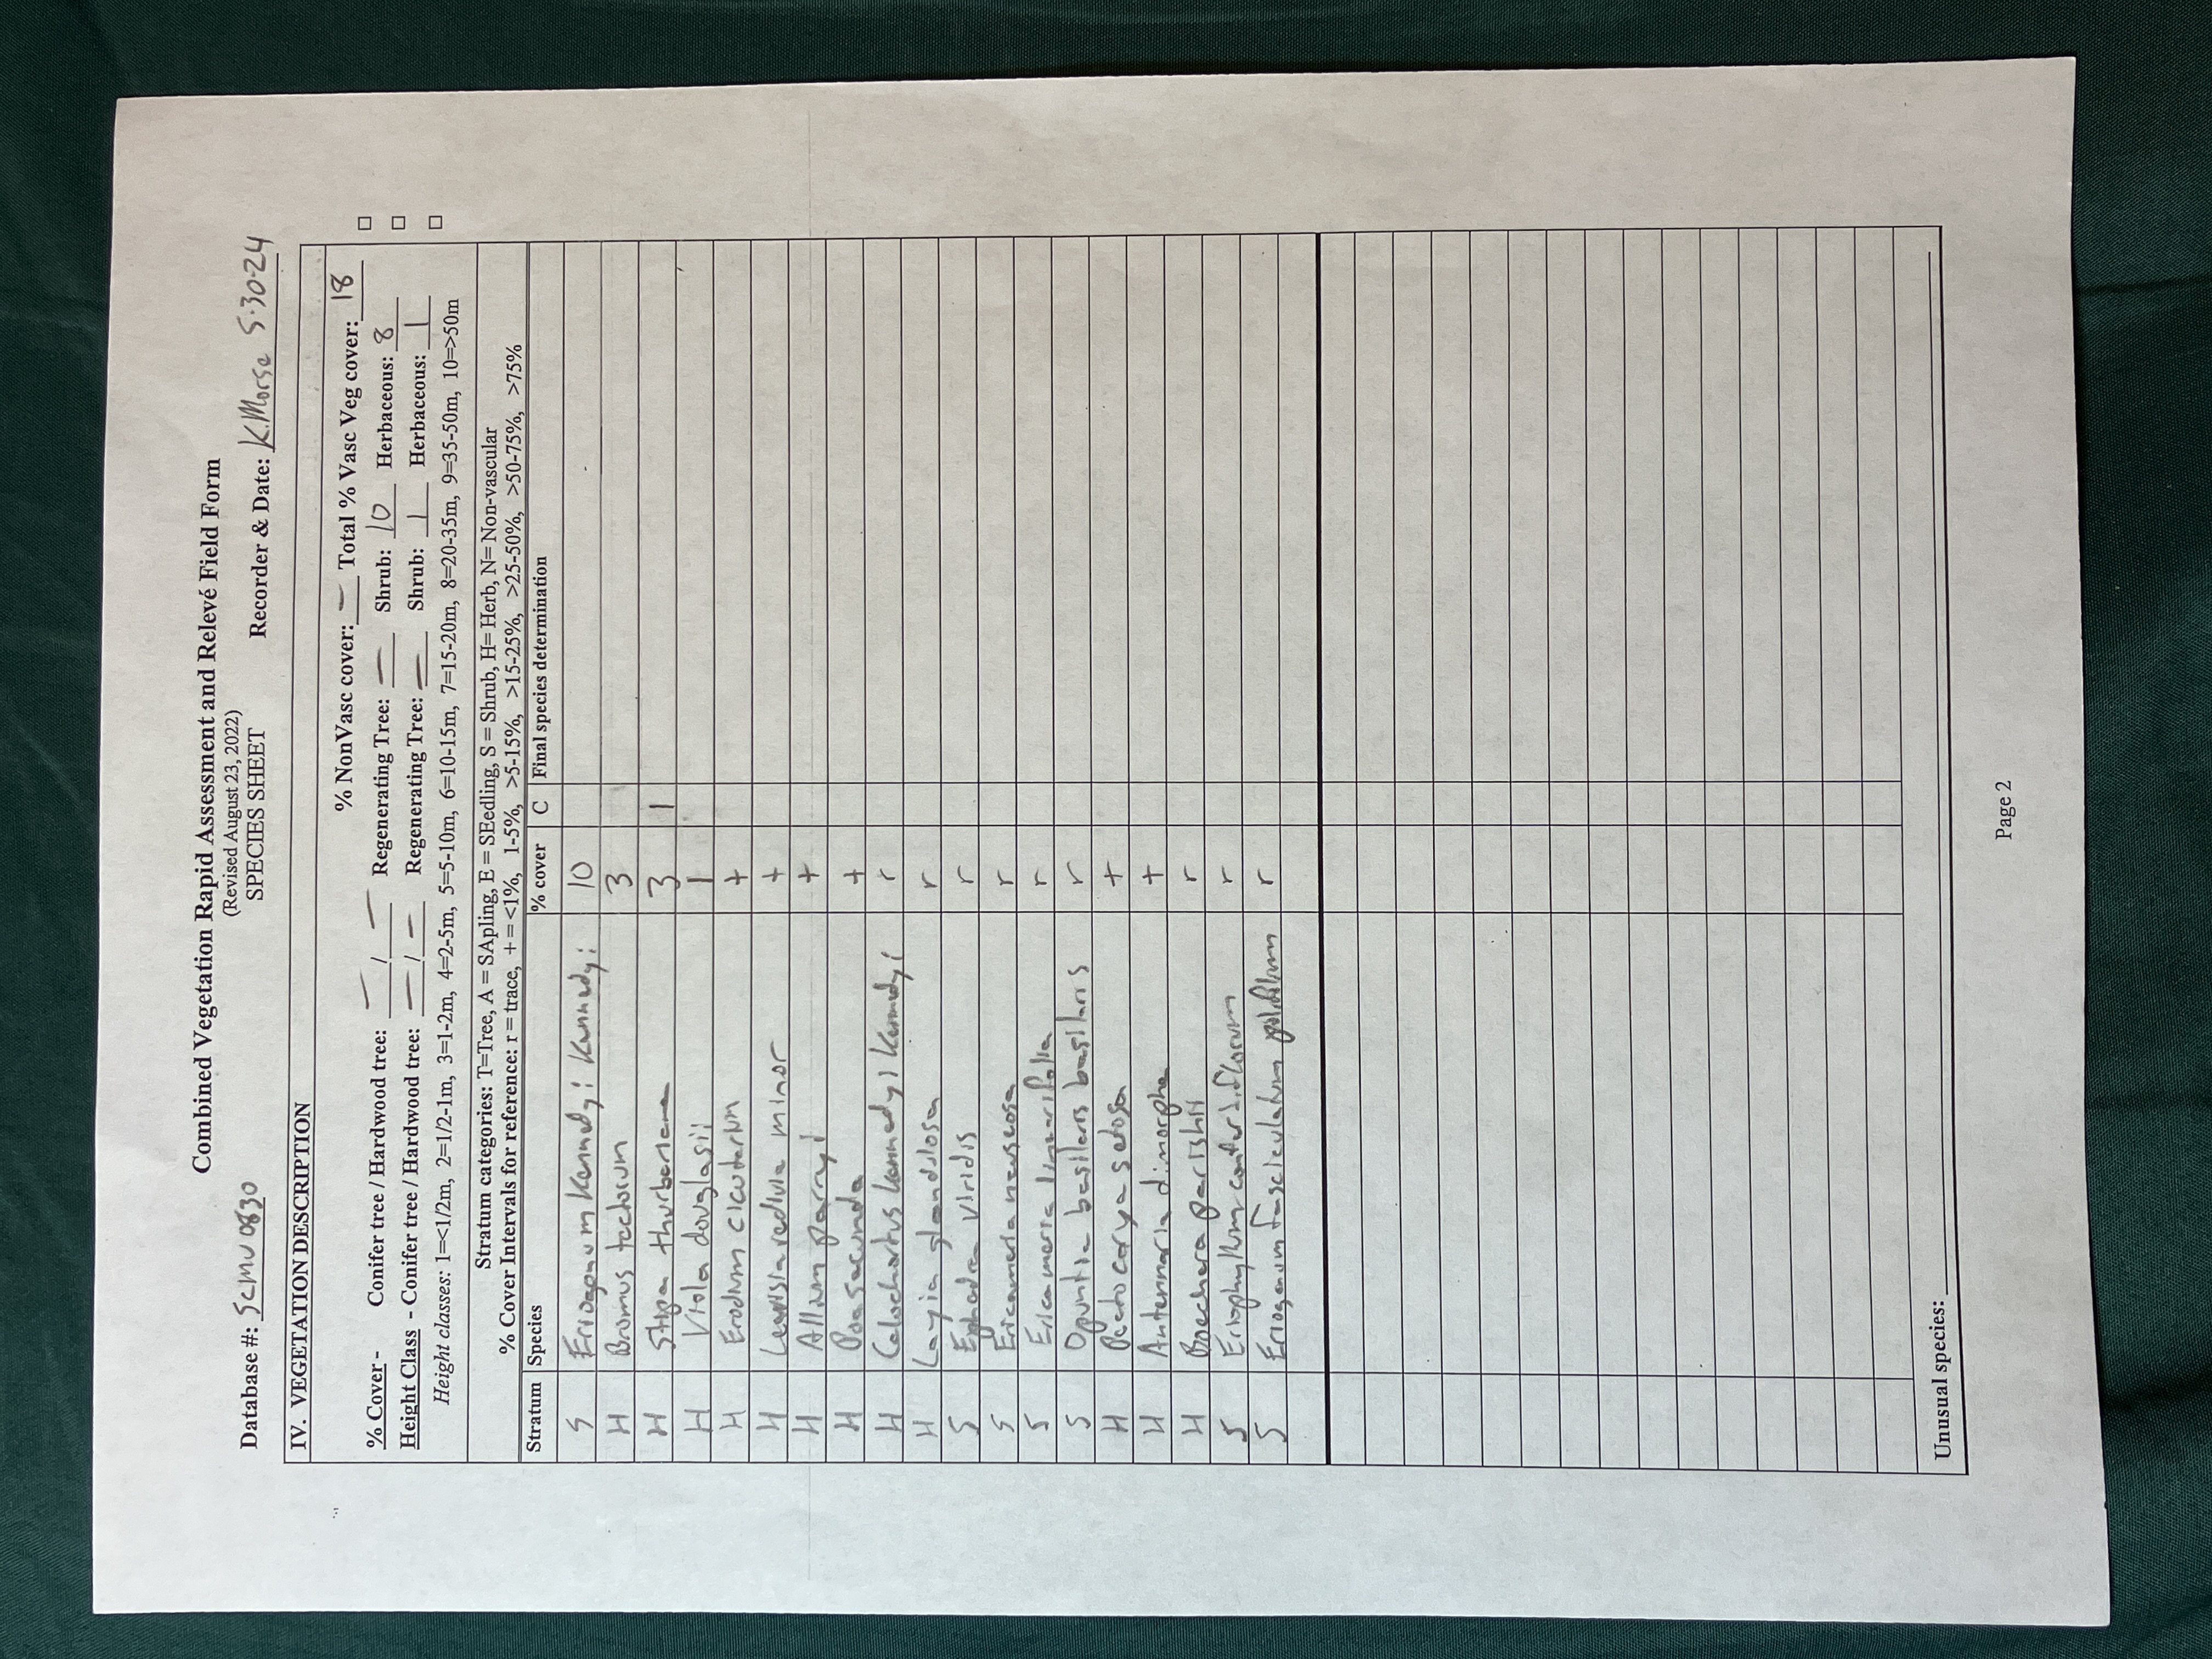 Combined Vegetation Rapid Assessment and Relevé Field Form
(Revised August 23, 2022)
SPECIES SHEET
Database #: SCMU0830 Recorder & Date: K.Morse 5·30·24
IV. VEGETATION DESCRIPTION
% NonVasc cover: — Total % Vasc Veg cover: 18
% Cover - Conifer tree / Hardwood tree: — / — Regenerating Tree: — Shrub: 10 Herbaceous: 8 □
Height Class - Conifer tree / Hardwood tree: — / — Regenerating Tree: — Shrub: 1 Herbaceous: 1 □
Height classes: 1=<1/2m, 2=1/2-1m, 3=1-2m, 4=2-5m, 5=5-10m, 6=10-15m, 7=15-20m, 8=20-35m, 9=35-50m, 10=>50m □
Stratum categories: T=Tree, A = SApling, E = SEedling, S = Shrub, H= Herb, N= Non-vascular
% Cover Intervals for reference: r = trace, + = <1%, 1-5%, >5-15%, >15-25%, >25-50%, >50-75%, >75%
Stratum Species % cover C Final species determination
S Eriogonum Kennedyi Kennedyi 10
H Bromus tectorum 3
H Stipa thurberiana 3 1
H Viola douglasii 1
H Erodium cicutarium +
H Lewisia rediviva minor +
H Allium parryi +
H Poa secunda +
H Calochortus kennedyi Kennedyi r
H Layia glandulosa r
S Ephedra viridis r
S Ericameria nauseosa r
S Ericameria linearifolia r
S Opuntia basilaris basilaris r
H Pectocarya setosa +
H Antennaria dimorpha +
H Boechera parishii r
S Eriophyllum confertiflorum r
S Eriogonum fasciculatum polifolium r
Unusual species:
Page 2